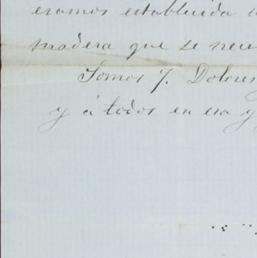 eramos establecida
madera que se nece
Somos J. Dolores
y á todos en esa y